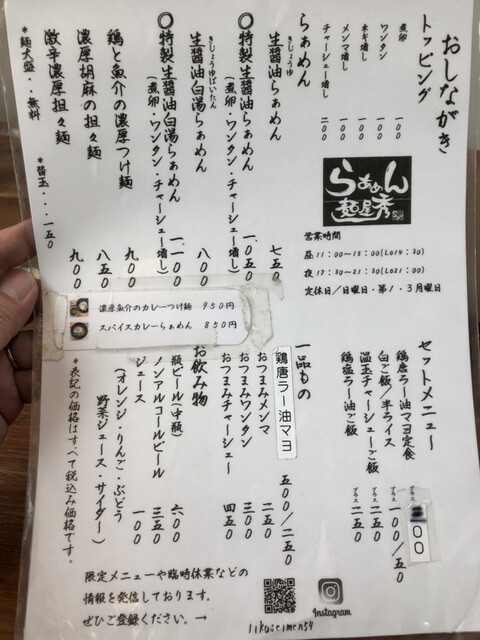 おしながき
トッピング
煮卵 一〇〇
ワンタン 一〇〇
ネギ増し 一〇〇
メンマ増し 一〇〇
チャーシュー増し 二〇〇
らぁめん
麺屋 秀
営業時間
昼11:00〜15:00(LO14:30)
夜17:30〜21:30(LO21:00)
定休日/日曜日・第1・3月曜日
らぁめん
きじょうゆ
生醤油らぁめん 七五〇
◎特製生醤油らぁめん 一、〇五〇
(煮卵・ワンタン・チャーシュー増し)
きじょうゆぱいたん
生醤油白湯らぁめん 八〇〇
◎特製生醤油白湯らぁめん 一、一〇〇
(煮卵・ワンタン・チャーシュー増し)
鶏と魚介の濃厚つけ麺 九〇〇
濃厚胡麻の担々麺 八五〇
激辛濃厚担々麺 九〇〇
*麺大盛・・無料
*替玉・・・一五〇
濃厚魚介のカレーつけ麺 950円
スパイスカレーらぁめん 850円
セットメニュー
鶏唐ラー油マヨ定食 プラス 300
白ご飯/半ライス プラス 一〇〇/五〇
温玉チャーシューご飯 プラス 二五〇
鶏塩ラー油ご飯 プラス 二五〇
一品もの
鶏唐ラー油マヨ 五〇〇/二五〇
おつまみメンマ 二五〇
おつまみワンタン 三五〇
おつまみチャーシュー 四五〇
お飲み物
瓶ビール(中瓶) 六〇〇
ノンアルコールビール 三五〇
ジュース 一〇〇
(オレンジ・りんご・ぶどう
野菜ジュース・サイダー)
*表記の価格はすべて税込み価格です。
限定メニューや臨時休業などの
情報を発信しております。
ぜひご登録ください。→
Instagram